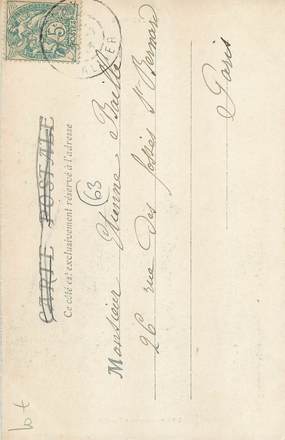 CARTE POSTALE
Ce côté est exclusivement réservé à l'adresse
63
Monsieur Etienne Baille
26 rue des fossés St Bernard
Paris
5